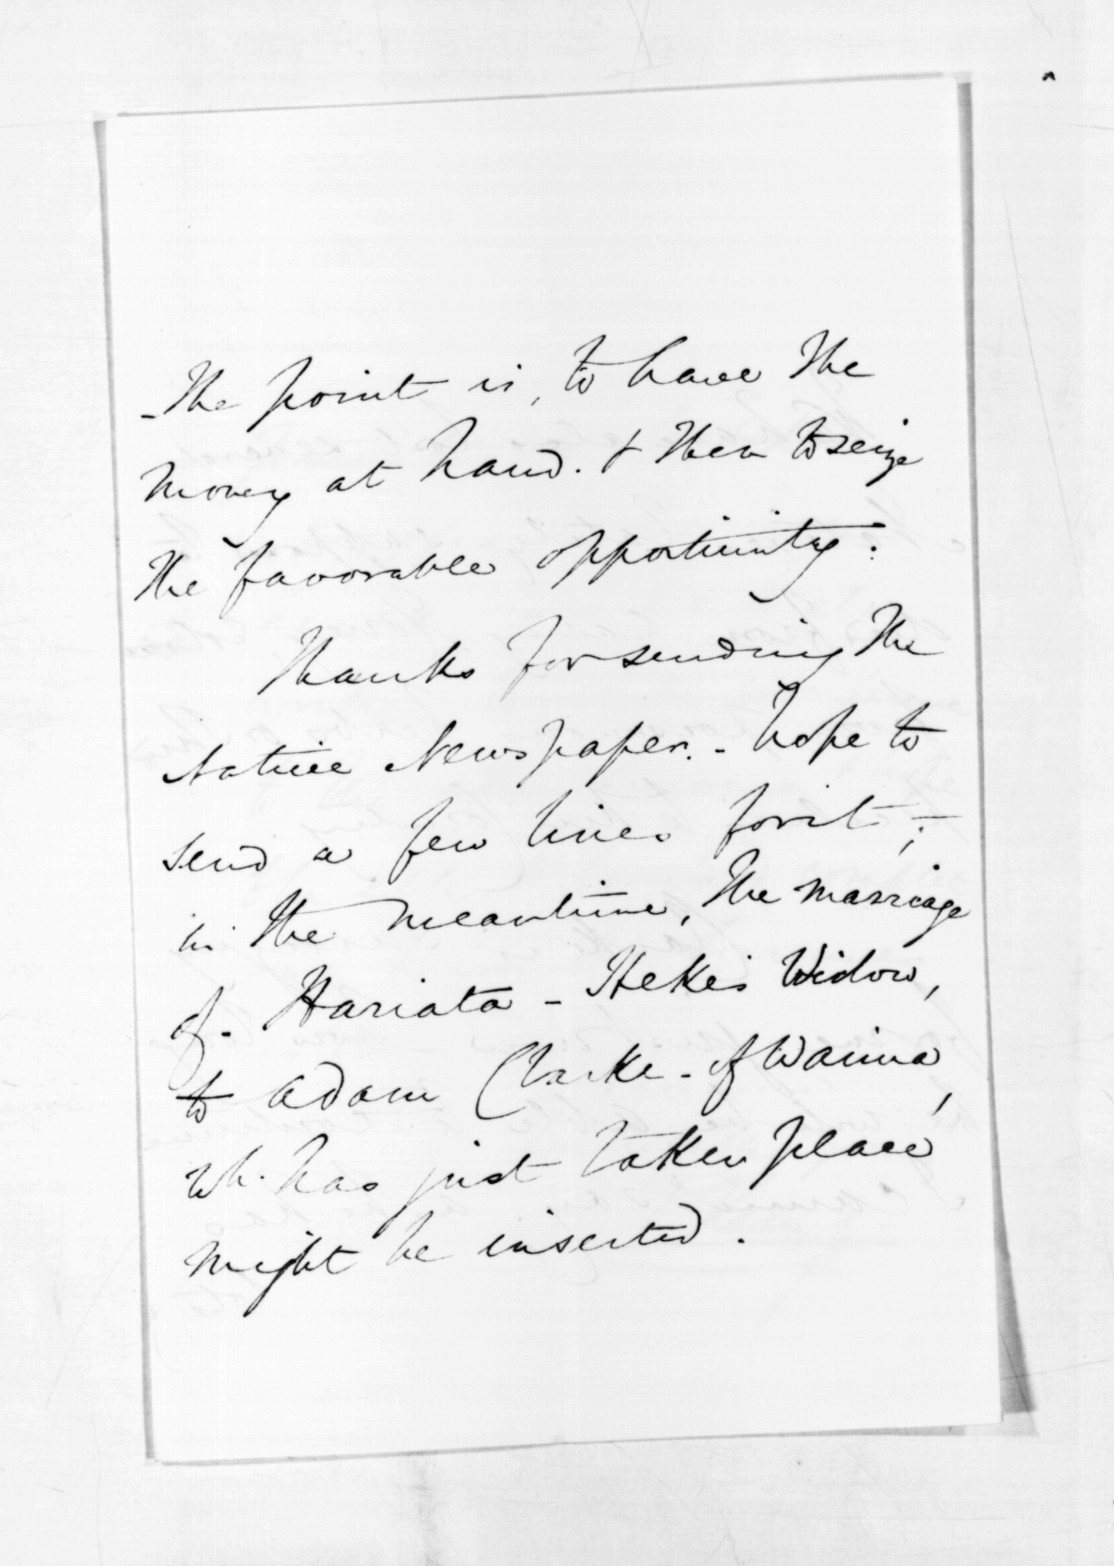 - The point is, to have the
money at hand. & then to seize
the favorable opportunity.
Thanks for sending the
Native Newspaper. - hope to
send a few lines for it -;
in the meantime, the marriage
of - Hariata - Heke's Widow,
to Adam Clarke - of Waima,
wh. has just taken place
might be inserted.